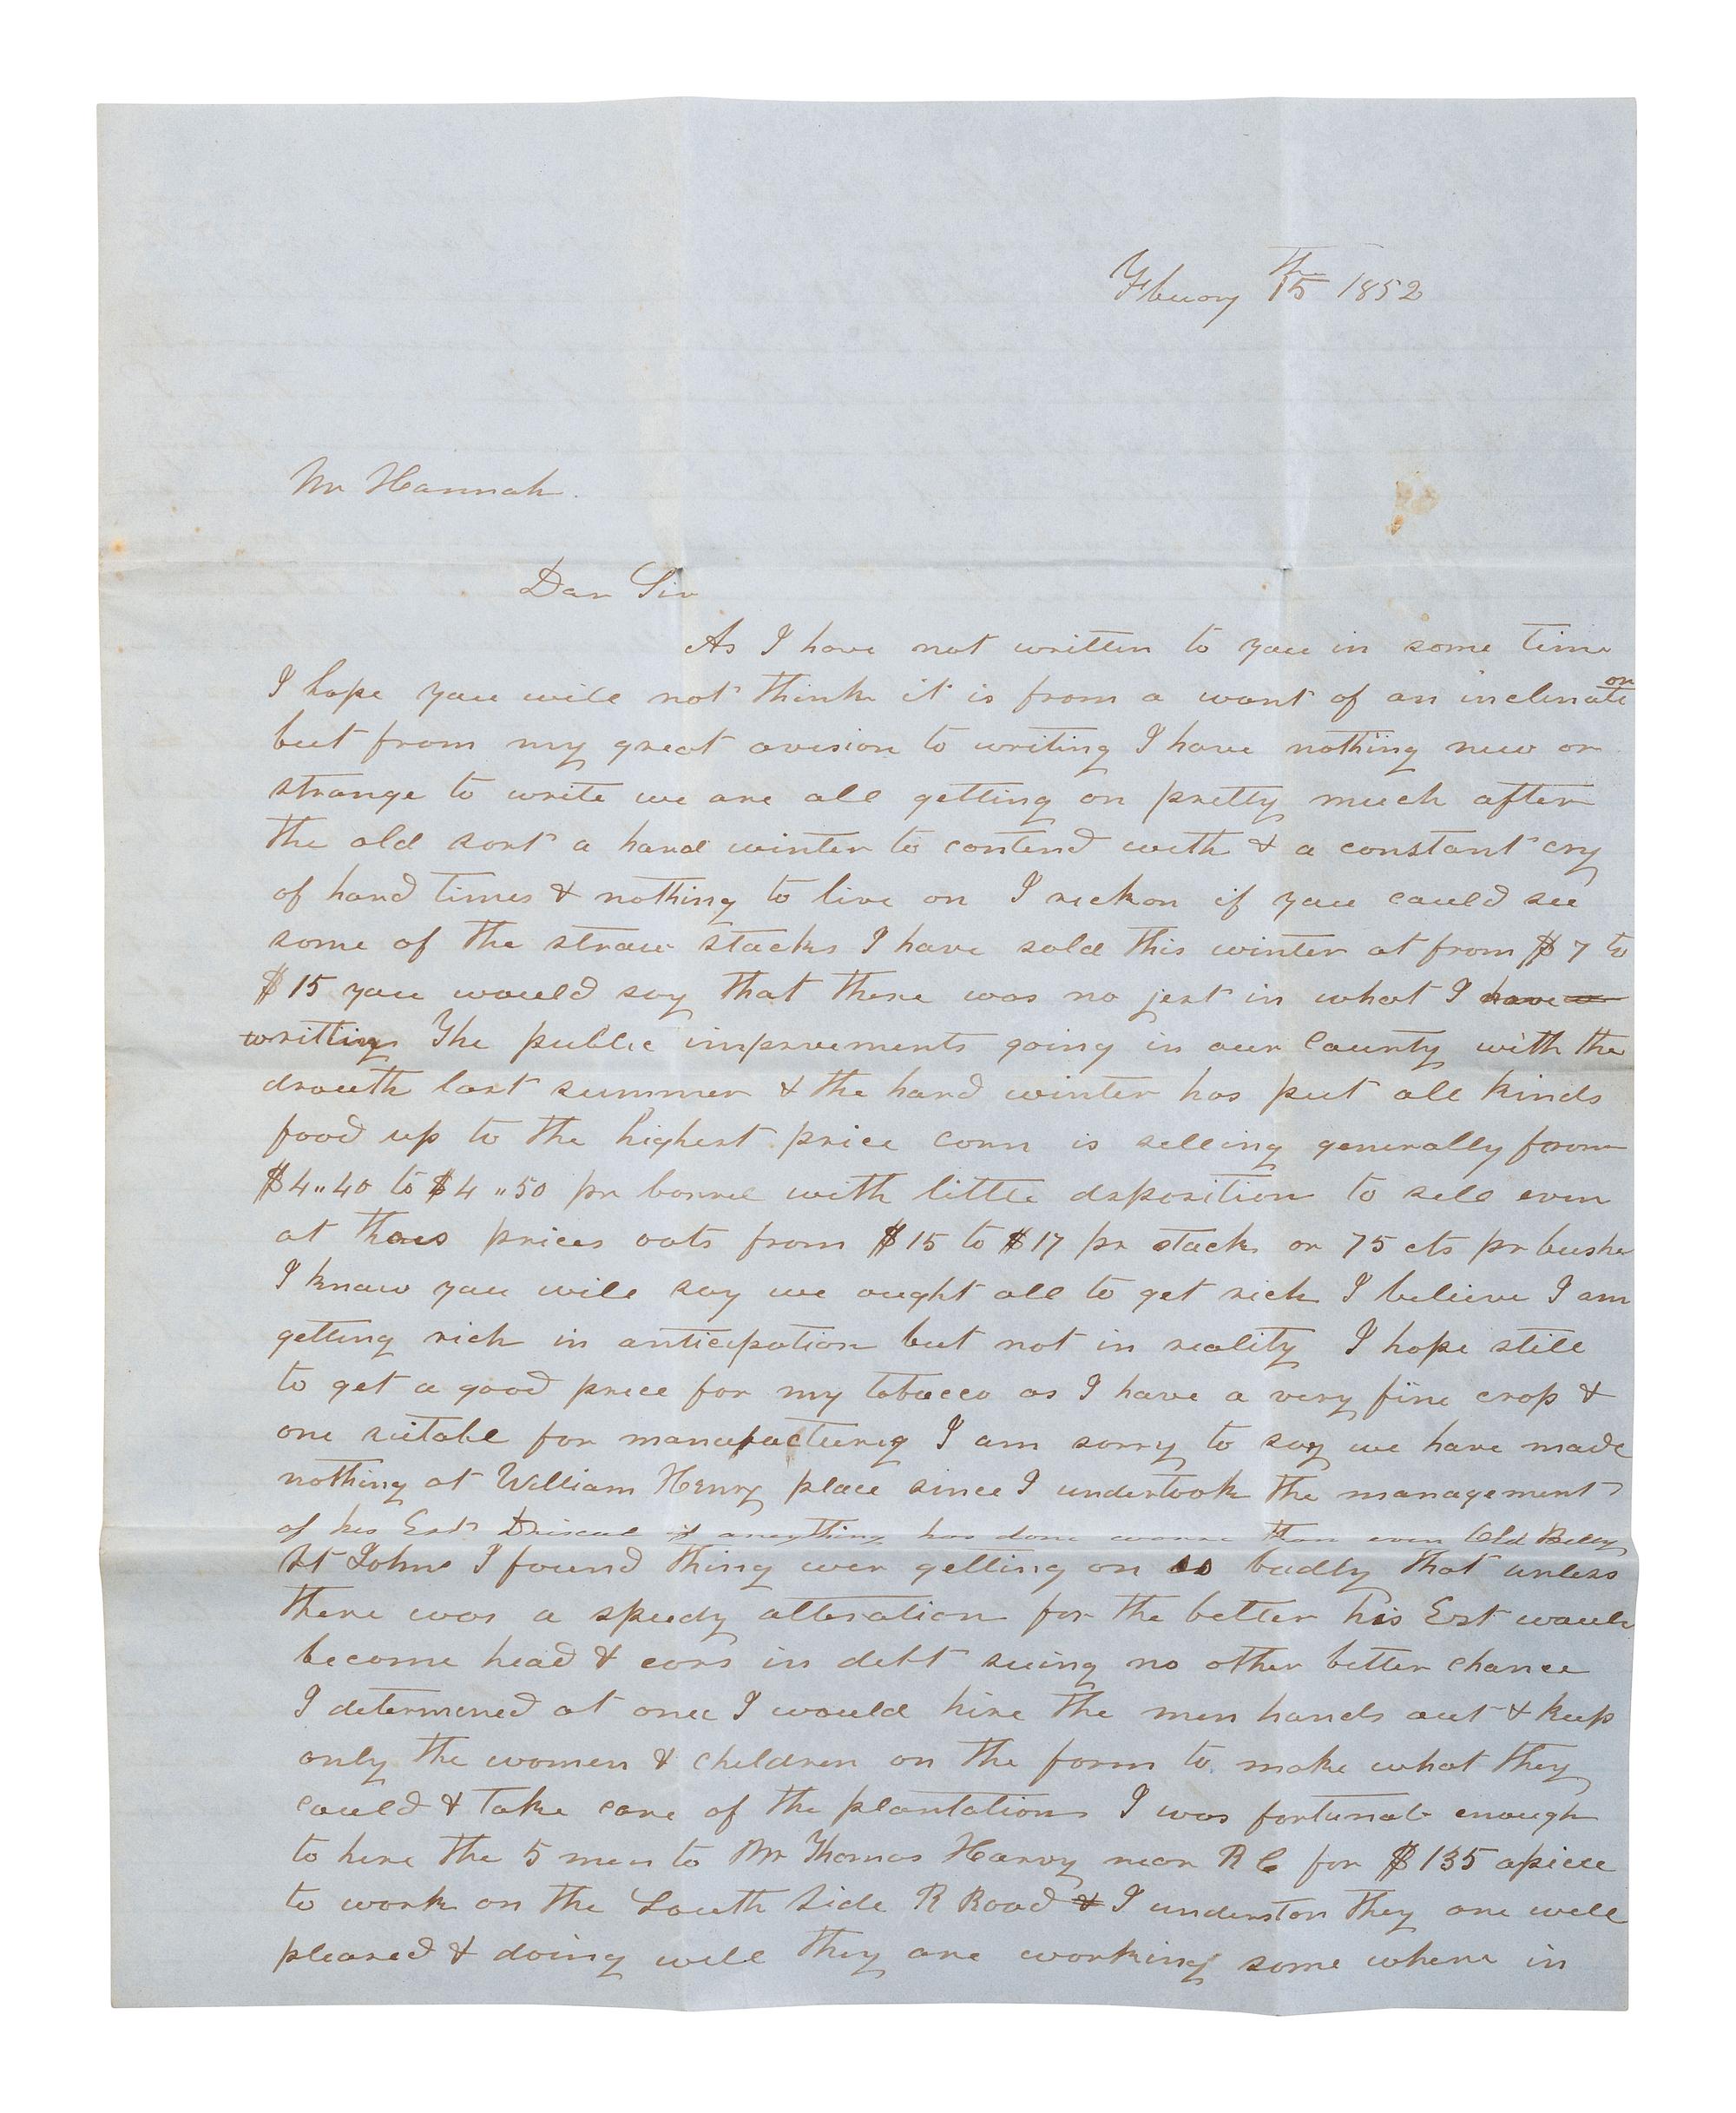 Febuary 15th 1852
Mr Hannah.
Dar Sir
As I have not written to you in some time
I hope you will not think it is from a want of an inclination
but from my great avision to writing I have nothing new or
strange to write we are all getting on pretty much after
the old sort a hard winter to contend with & a constant cry
of hard times & nothing to live on I reckon if you could see
some of the straw stacks I have sold this winter at from $7 to
$15 you would say that there was no jest in what I have
writting The public improvements going in our County with the
drouth last summer & the hard winter has put all kinds
food up to the highest price corn is selling generally from
$4"40 to $4"50 pr barrel with little dsposition to sell even
at thoes prices oats from $15 to $17 pr stack or 75 cts pr bushe
I know you will say we ought all to get rich I believe I am
getting rich in anticipation but not in reality I hope still
to get a good price for my tobacco as I have a very fine crop &
one suitable for manufacturing I am sorry to say we have made
nothing at William Henry place since I undertook the management
of his Est Driscul if anything has done worse than even Old Billy
St John I found thing wer getting on so badly that unless
there was a speedy alteration for the better his Est would
become head & ears in debt seing no other better chance
I determined at once I would hire the men hands out & keep
only the women & children on the farm to make what they
could & take care of the plantations I was fortunate enough
to hire the 5 men to Mr Thomas Harvy near R C for $135 apiece
to work on the South Side R Road & I understan they are well
pleased & doing well they are working some where in